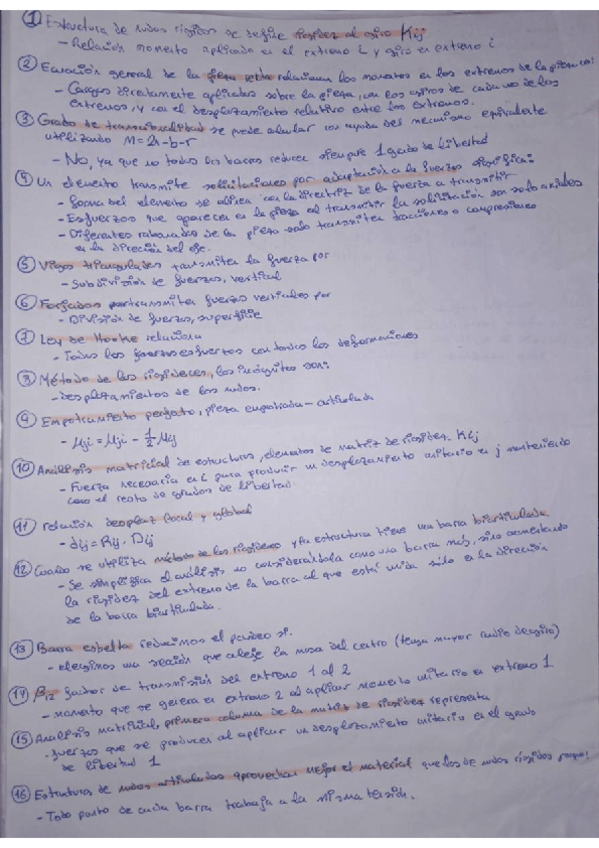 ① Estructura de nudos rígidos se define rigidez al giro Kij
- Relación momento aplicado en el extremo i y giro en extremo i
② Ecuación general de la pieza recta relacionan los momentos en los extremos de la pieza con:
- Cargas directamente aplicadas sobre la pieza, con los giros de cada uno de los
extremos, y con el desplazamiento relativo entre los extremos.
③ Grado de traslacionalidad se puede calcular con ayuda del mecanismo equivalente
utilizando M=2n-b-r
- No, ya que no todas las barras reducen siempre 1 grado de libertad
④ Un elemento transmite solicitaciones por adaptación a la fuerza significa:
- Forma del elemento se alinea con la directriz de la fuerza a transmitir
- Esfuerzos que aparecen en la pieza al transmitir la solicitación son solo axiales
- Diferentes rebanadas de la pieza solo transmiten tracciones o compresiones
en la dirección del eje.
⑤ Vigas trianguladas transmiten la fuerza por
- Subdivisión de fuerzas, vertical
⑥ Forjados transmiten fuerzas verticales por
- División de fuerzas, superficie
⑦ Ley de Hooke relaciona
- Todos los esfuerzos con todas las deformaciones
⑧ Método de las rigideces, las incógnitas son:
- desplazamientos de los nudos.
⑨ Empotramiento perfecto, pieza empotrada - articulada
- μji = μji - 1/2 μij
⑩ Análisis matricial de estructuras, elementos de matriz de rigidez Kij
- Fuerza necesaria en i para producir un desplazamiento unitario en j manteniendo
cero el resto de grados de libertad
⑪ relación desplaz local y global
- dij = Rij · Dij
⑫ Cuando se utiliza método de las rigideces y la estructura tiene una barra biarticulada
- Se simplifica el análisis no considerándola como una barra más, sino aumentando
la rigidez del extremo de la barra al que está unida sólo en la dirección
de la barra biarticulada.
⑬ Barra esbelta reducimos el pandeo si.
- elegimos una sección que aleje la masa del centro (tenga mayor radio de giro)
⑭ β12 factor de transmisión del extremo 1 al 2
- momento que se genera en extremo 2 al aplicar momento unitario en extremo 1
⑮ Análisis matricial, primera columna de la matriz de rigidez representa
- fuerzas que se producen al aplicar un desplazamiento unitario en el grado
de libertad 1
⑯ Estructuras de nudos articulados aprovechan mejor el material que las de nudos rígidos porque:
- Todo punto de cada barra trabaja a la misma tensión.